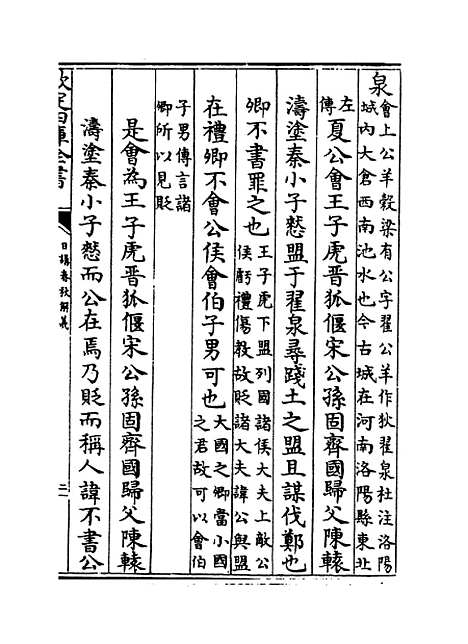 泉會上公羊穀梁有公字翟公羊作狄翟泉杜注洛陽
城内大倉西南池水也今古城在河南洛陽縣東北
左傳夏公會王子虎晉狐偃宋公孫固齊國歸父陳轅
濤塗秦小子憖盟于翟泉尋踐土之盟且謀伐鄭也
卿不書罪之也王子虎下盟列國諸侯大夫上敵公
侯虧禮傷教故貶諸大夫諱公與盟
在禮卿不會公侯會伯子男可也大國之卿當小國
之君故可以會伯
子男傳言諸
卿所以見貶
是會為王子虎晉狐偃宋公孫固齊國歸父陳轅
濤塗秦小子憖而公在焉乃貶而稱人諱不書公
欽定四庫全書
日講春秋解義